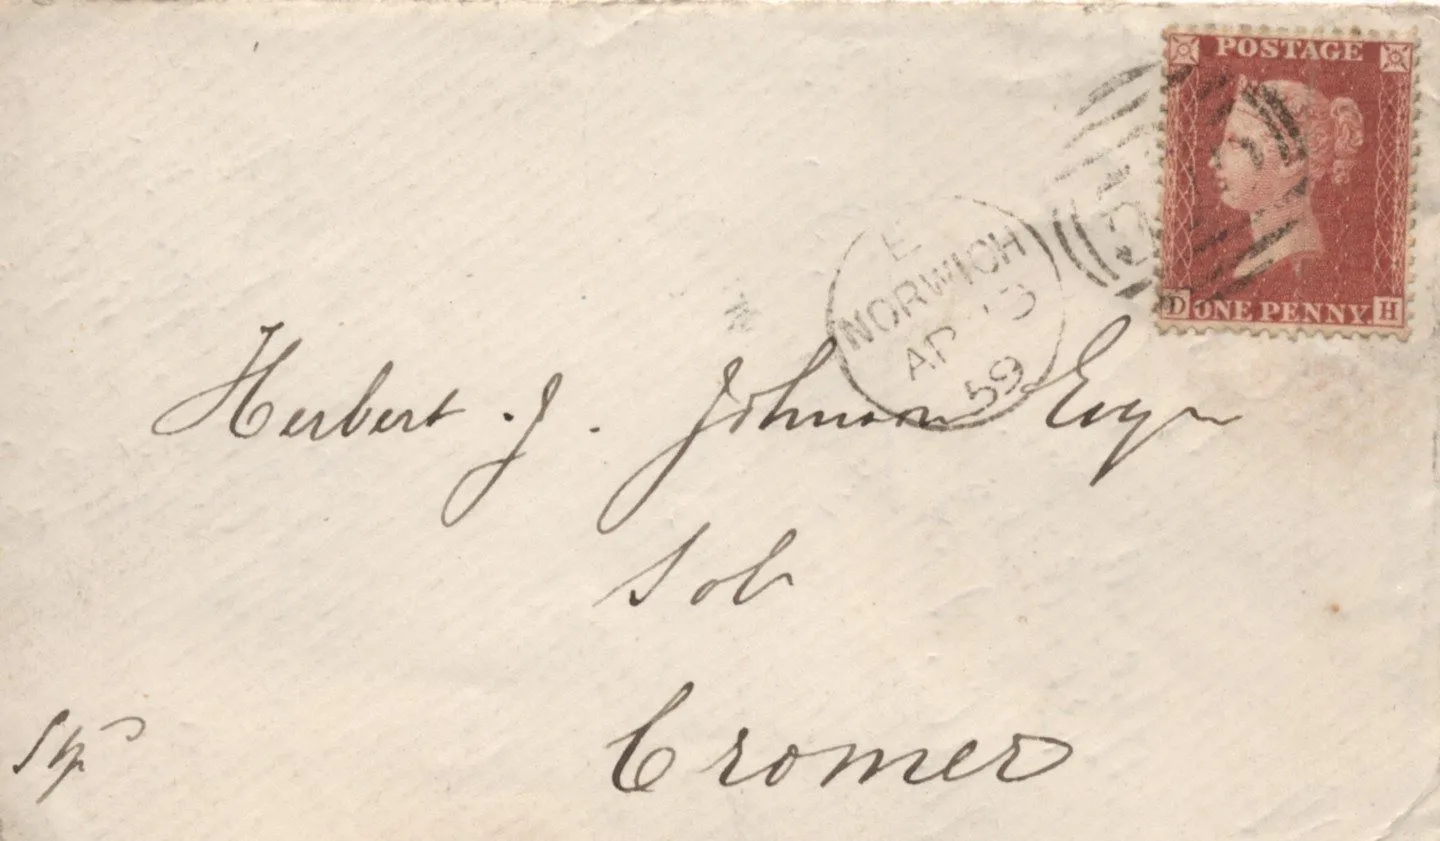 POSTAGE
D ONE PENNY. H
E
NORWICH
AP 13
59
Herbert. J. Johnson Esqr
Solr
Cromer